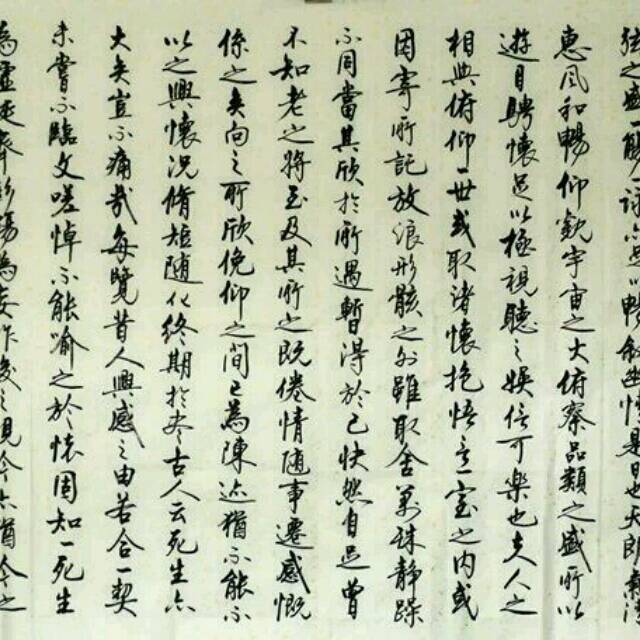 弦之盛一觴一詠亦足以暢叙幽情是日也天朗氣清
惠風和暢仰觀宇宙之大俯察品類之盛所以
遊目騁懷足以極視聽之娛信可樂也夫人之
相與俯仰一世或取諸懷抱悟言一室之內或
因寄所託放浪形骸之外雖取舍萬殊靜躁
不同當其欣於所遇暫得於己快然自足曾
不知老之將至及其所之既倦情隨事遷感慨
係之矣向之所欣俛仰之間已為陳迹猶不能不
以之興懷況脩短隨化終期於盡古人云死生亦
大矣豈不痛哉每覽昔人興感之由若合一契
未嘗不臨文嗟悼不能喻之於懷固知一死生
為虛誕齊彭殤為妄作後之視今亦猶今之